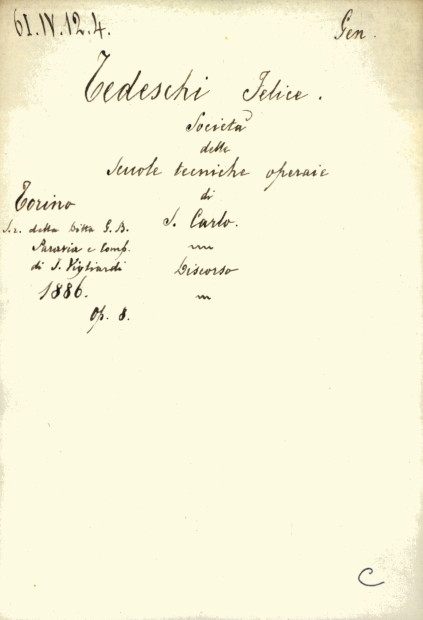 61.IV.12.4.
Gen.
Tedeschi Felice.
Società
delle
Scuole tecniche operaie
di
S. Carlo.
Discorso
Torino
S. r. della Ditta G. B.
Paravia e Comp.
di I. Vigliardi
1886.
Op. 8.
C